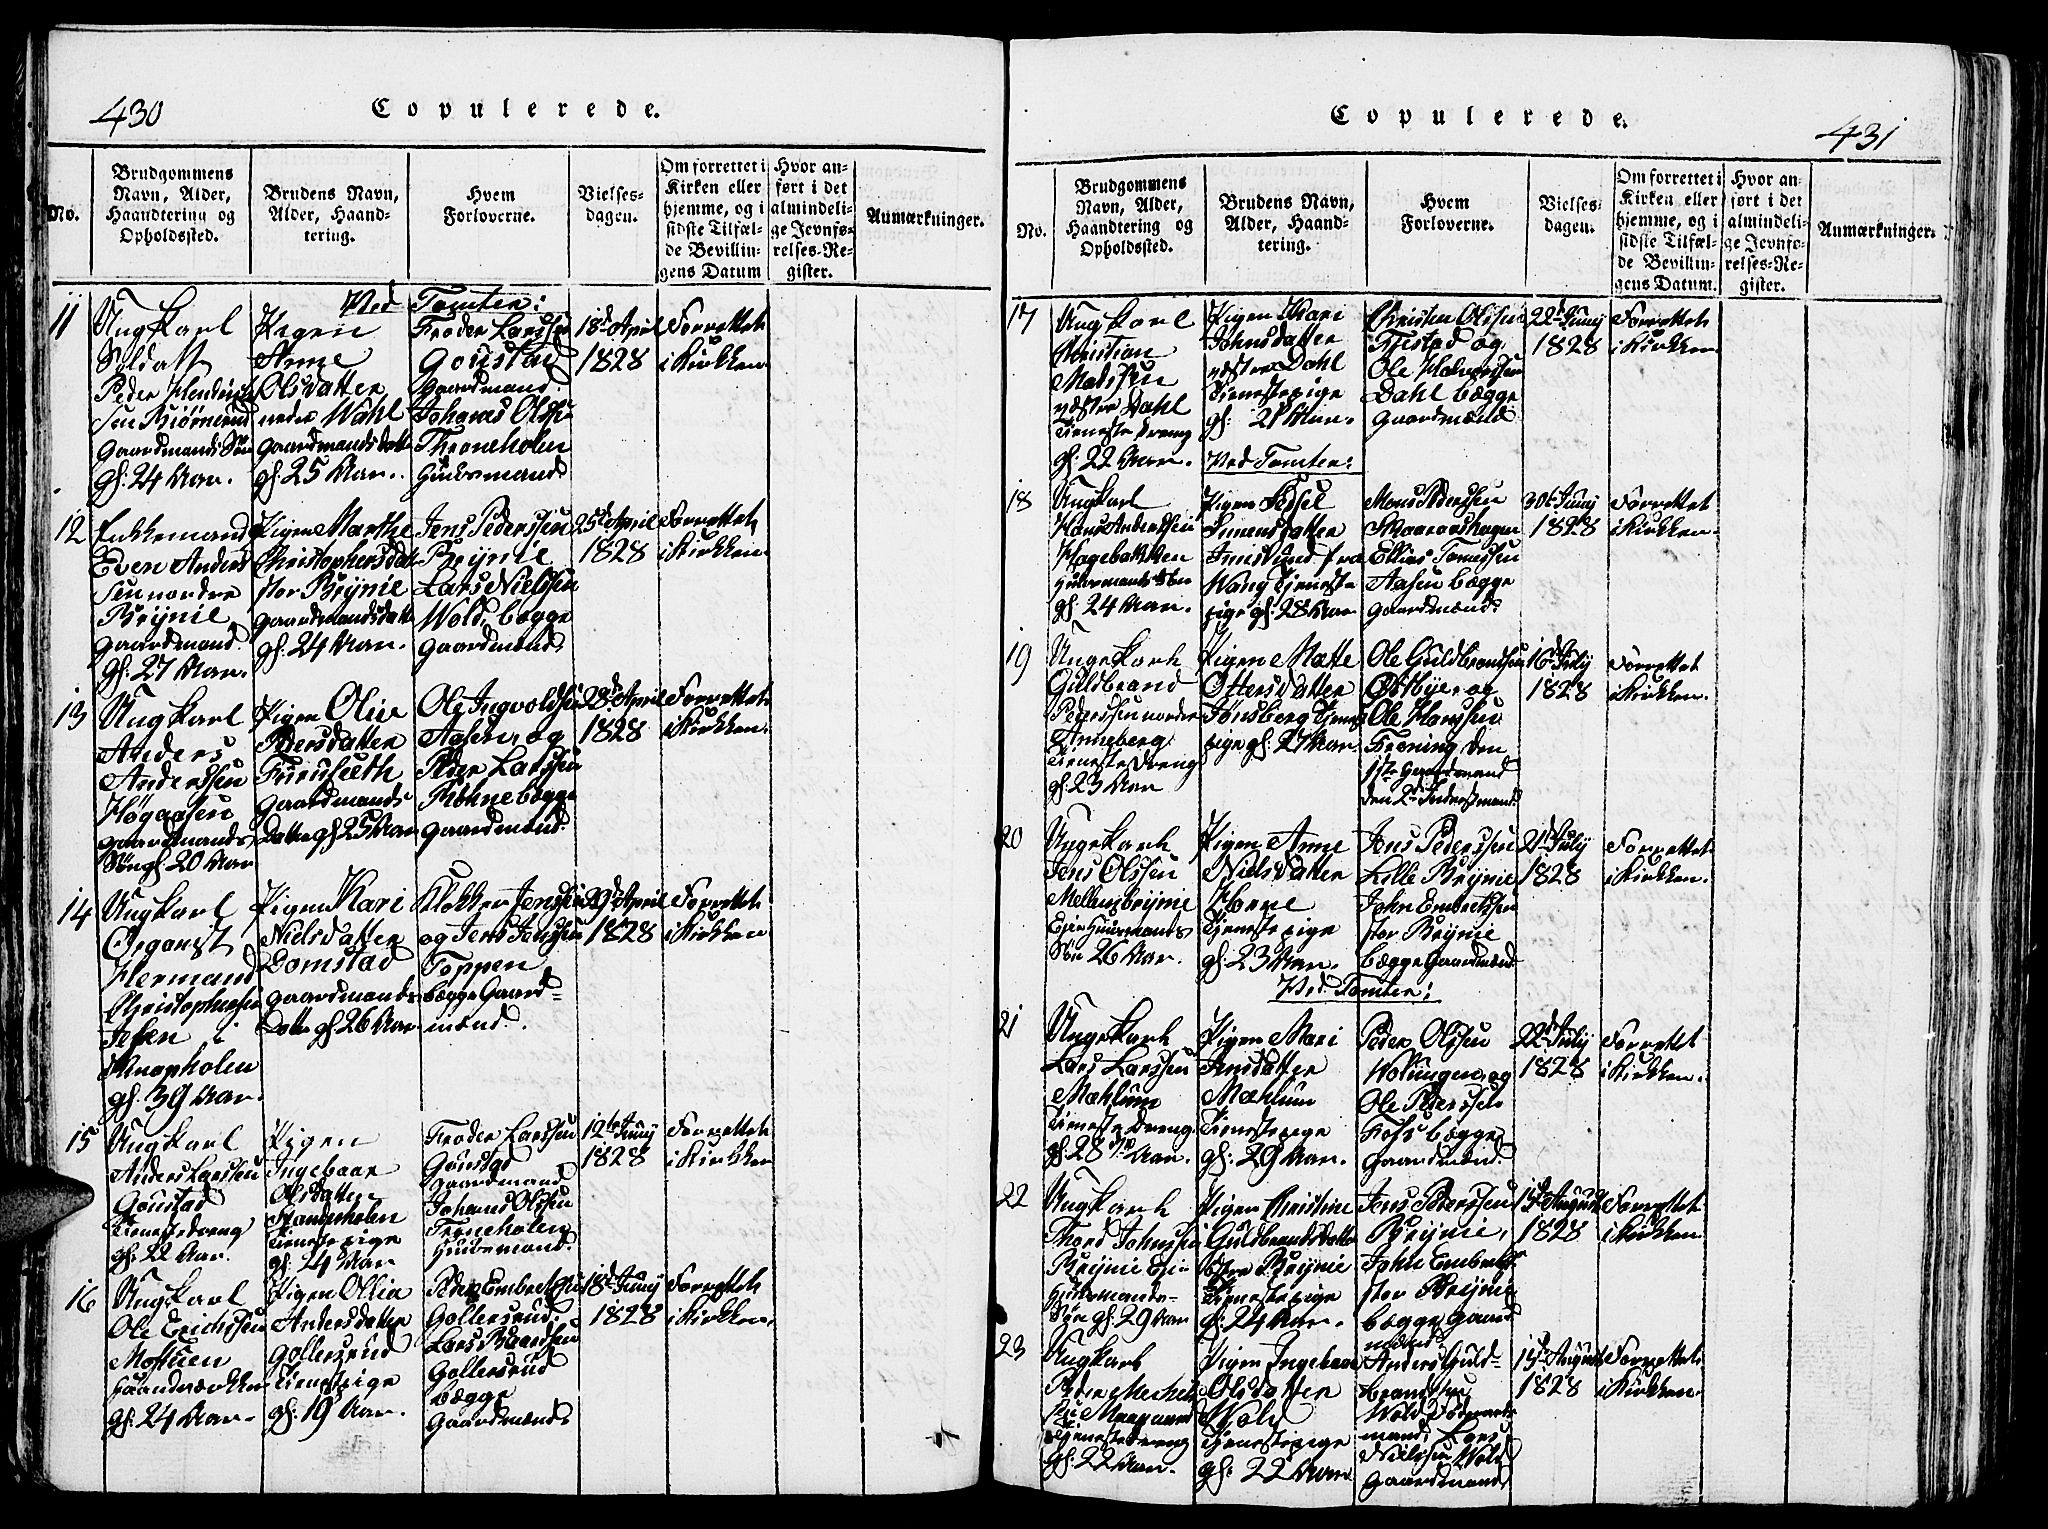 430
Copulerede.
No.
Brudgommens
Navn, Alder,
Haandtering og
Opholdssted.
Brudens Navn,
Alder, Haand-
tering.
Hvem
Forloverne.
Vielses-
dagen.
Om forrettet i
Kirken eller
hjemme, og i
sidste Tilfæl-
de Bevillin-
gens Datum
Hvor an-
ført i det
almindeli-
ge Jevnfø-
relses-Re-
gister.
Anmærkninger.
Ved Tomter:
11
Ungkarl
Soldatt
Peder Hendrich
sen Biørnerud
Gaardmands Søn
gl: 24 Aar.
Pigen
Anne
Olsdatter
nedre Wahl
Gaardmandsdatt
gl: 25 Aar.
Froder Larssen
Goustad
Gaardmand
Johanes Olssen
Throneholen
Huusmand
18d April
1828
Forrettet
i Kirken.
12
Enkemand
Even Anders
sen nordre
Brynie
Gaardmand
gl: 27 Aar.
Pigen Marthe
Christophersdatt
stor Brynie
Gaardmandsdatt
gl: 24 Aar.
Jens Pederssen
Brynie
Lars Nielssen
Wold, begge
Gaardmænd
25d April
1828
Forrettet
i Kirken.
13
Ungkarl
Anders
Anderssen
Høgaasen
Gaardmands
Søn gl. 20 Aar
Pigen Olie
Pedersdatter
Furuseth
Gaardmands
Datter gl 25 Aar
Ole Ingvoldsen
Aasen, og
Peder Larssen
Rohne begge
Gaardmænd.
28d April
1828
Forrettet
i Kirken.
14
Ungkarl
Organist
Hermand
Christophersen
i
Knapholen
gl. 39 Aar.
Pigen Kari
Nielsdatter
Domstad
Gaardmands
Datter gl 26 Aar
Klokker Jenssen
og Jens Jenssen
Toppen
begge Gaard-
mænd.
29d April
1828
Forrettet
i Kirken
15
Ungkarl
Anders Larssen
Goustad
Tienestedreng
gl: 22 Aar.
Pigen
Ingebaar
Olsdatter
Tienestepige
gl. 24 Aar
Froder Larssen
Goustad
Gaardmand
Johanes Olssen
Troneholen
Huusmand.
12te Juny
1828
Forrettet
i Kirken
16
Ungkarl
Ole Erichssen
Haandværker
gl: 24 Aar.
Pigen Ollia
Andersdatter
Gollersrud
Tienestpige
gl: 19 Aar.
Peder Embretssen
Gollersrud.
Lars Baardsen
Gollersrud
begge
Gaardmænd
18d Juny
1828
Forrettet
i Kirken.
431
Copulerede.
No.
Brudgommens
Navn, Alder,
Haandtering og
Opholdssted.
Brudens Navn,
Alder, Haand-
tering.
Hvem
Forloverne.
Vielses-
dagen.
Om forrettet i
Kirken eller
hjemme, og i
sidste Tilfæl-
de Bevillin-
gens Datum.
Hvor an-
ført i det
almindeli-
ge Jevnfø-
relses-Re-
gister.
Anmærkninger.
17
Ungkarl
Christian
Madssen
østre Dahl
Tieneste dreng
gl. 22 Aar.
Pigen Kari
Johnsdatter
østre Dahl
Tienestepige
gl: 21 Aar.
Christen Olssen
Tjestad og
Ole Halvorssen
Dahl begge
Gaardmænd
22d Juny
1828
Forrettet
i Kirken.
Ved Tomter:
18
Ungkarl
Hans Anderssen
Hagebakken
Huusmands Søn
gl: 24 Aar.
Pigen
Simensdatter
fra
Wang Tjeneste
pige gl. 28 Aar
Mons Pederssen
Ellias Tomessen
Aasen begge
Gaardmænd
30t Juny
1828
Forrettet
i Kirken.
19
Ungekarl
Guldbrand
Pederssen nordre
Anneberg
Tieneste dreng
gl. 23 Aar
Pigen Mætte
Ottersdatter
Jønsberg Tjenest
pige gl. 27 Aar
Ole Guldbrandsen
Østbye og
Ole Hanssen
Frening den
1ste Gaardmand
den 2d Inderstmand
16d July
1828
Forrettet
i Kirken.
20
Ungekarl
Jens Olssen
Mellembrynie
Eier Huusmands
Søn 26 Aar.
Pigen Anne
Nielsdatter
Horne
Tjenestepige
gl. 23 Aar.
Jens Pederssen
Lille Brynie
John Embretssen
stor Brynie
begge Gaardmænd
21d July
1828
Forrettet
i Kirken.
Ved Tomter:
21
Ungekarl
Lars Larssen
Mæhlum
Tieneste dreng
gl. 28 Aar.
Pigen Mari
Jensdatter
Mæhlum
Tienestepige
gl: 29 Aar.
Peder Olssen
Wolungen, og
Ole Pederssen
Fohs begge
Gaardmænd.
22d July
1828
Forrettet
i Kirken.
22
Ungkarl
Thord Johnssen
Brynie Eie
Huusmands-
Søn gl. 29 Aar
Pigen Christine
Guldbrandsdatte
østre Brynie
Tienestepige
gl: 24 Aar.
Jens Pederssen
Brynie,
John Embretss
stor Brynie
begge Gaard
mænd
15d August
1828
Forrettet
i Kirken.
23
Ungkarl
Peder Michel
sen
Tjenestedreng
gl: 22 Aar.
Pigen Ingebaar
Olsdatter
Wold
Tjenestepige
gl: 22 Aar.
Anders Guld-
brandsen
Wold
mand, Lars
Nielssen Wold
Gaardmænd
15d August
1828
Forrettet
i Kirken.